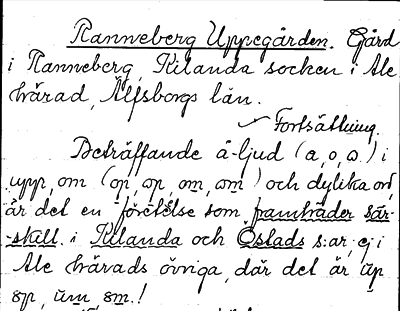 Ranneberg Uppegården. Gård
i Ranneberg, Kilanda socken i Ale
härad, Älfsborgs län.
Fortsättning.
Beträffande å-ljud (a, o, ω) i
upp, om (op, ωp, om, ωm) och dylika ord,
är det en företelse som framträder sär-
-skilt i Kilanda och Östads s:ar, ej i
Ale härads övriga, där det är up
op, um, om!